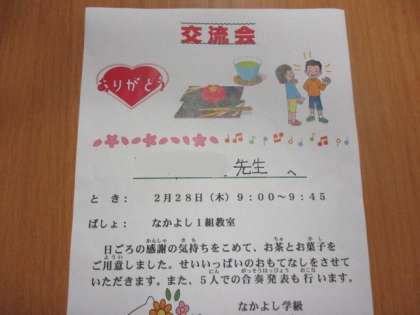 交流会
ありがとう
先生 へ
と き: 2月28日(木)9:00~9:45
ばしょ: なかよし1組教室
日ごろの感謝の気持ちをこめて、お茶とお菓子を
ご用意しました。せいいっぱいのおもてなしをさせて
いただきます。また、5人での合奏発表も行います。
なかよし学級